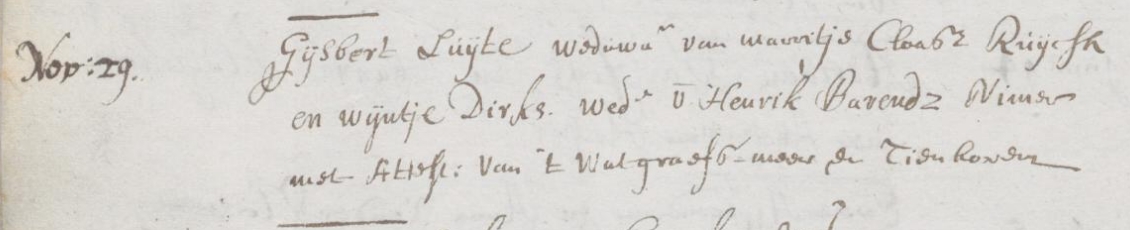 Nov: 29. Gijsbert Luijte weduwn.r van marritje Claasz Ruijchk
en wijntje Dirks. wed.e v̄ Henrik Barendz Vimer
met Attest: van 't Watgraefs-meer en Tienhoven